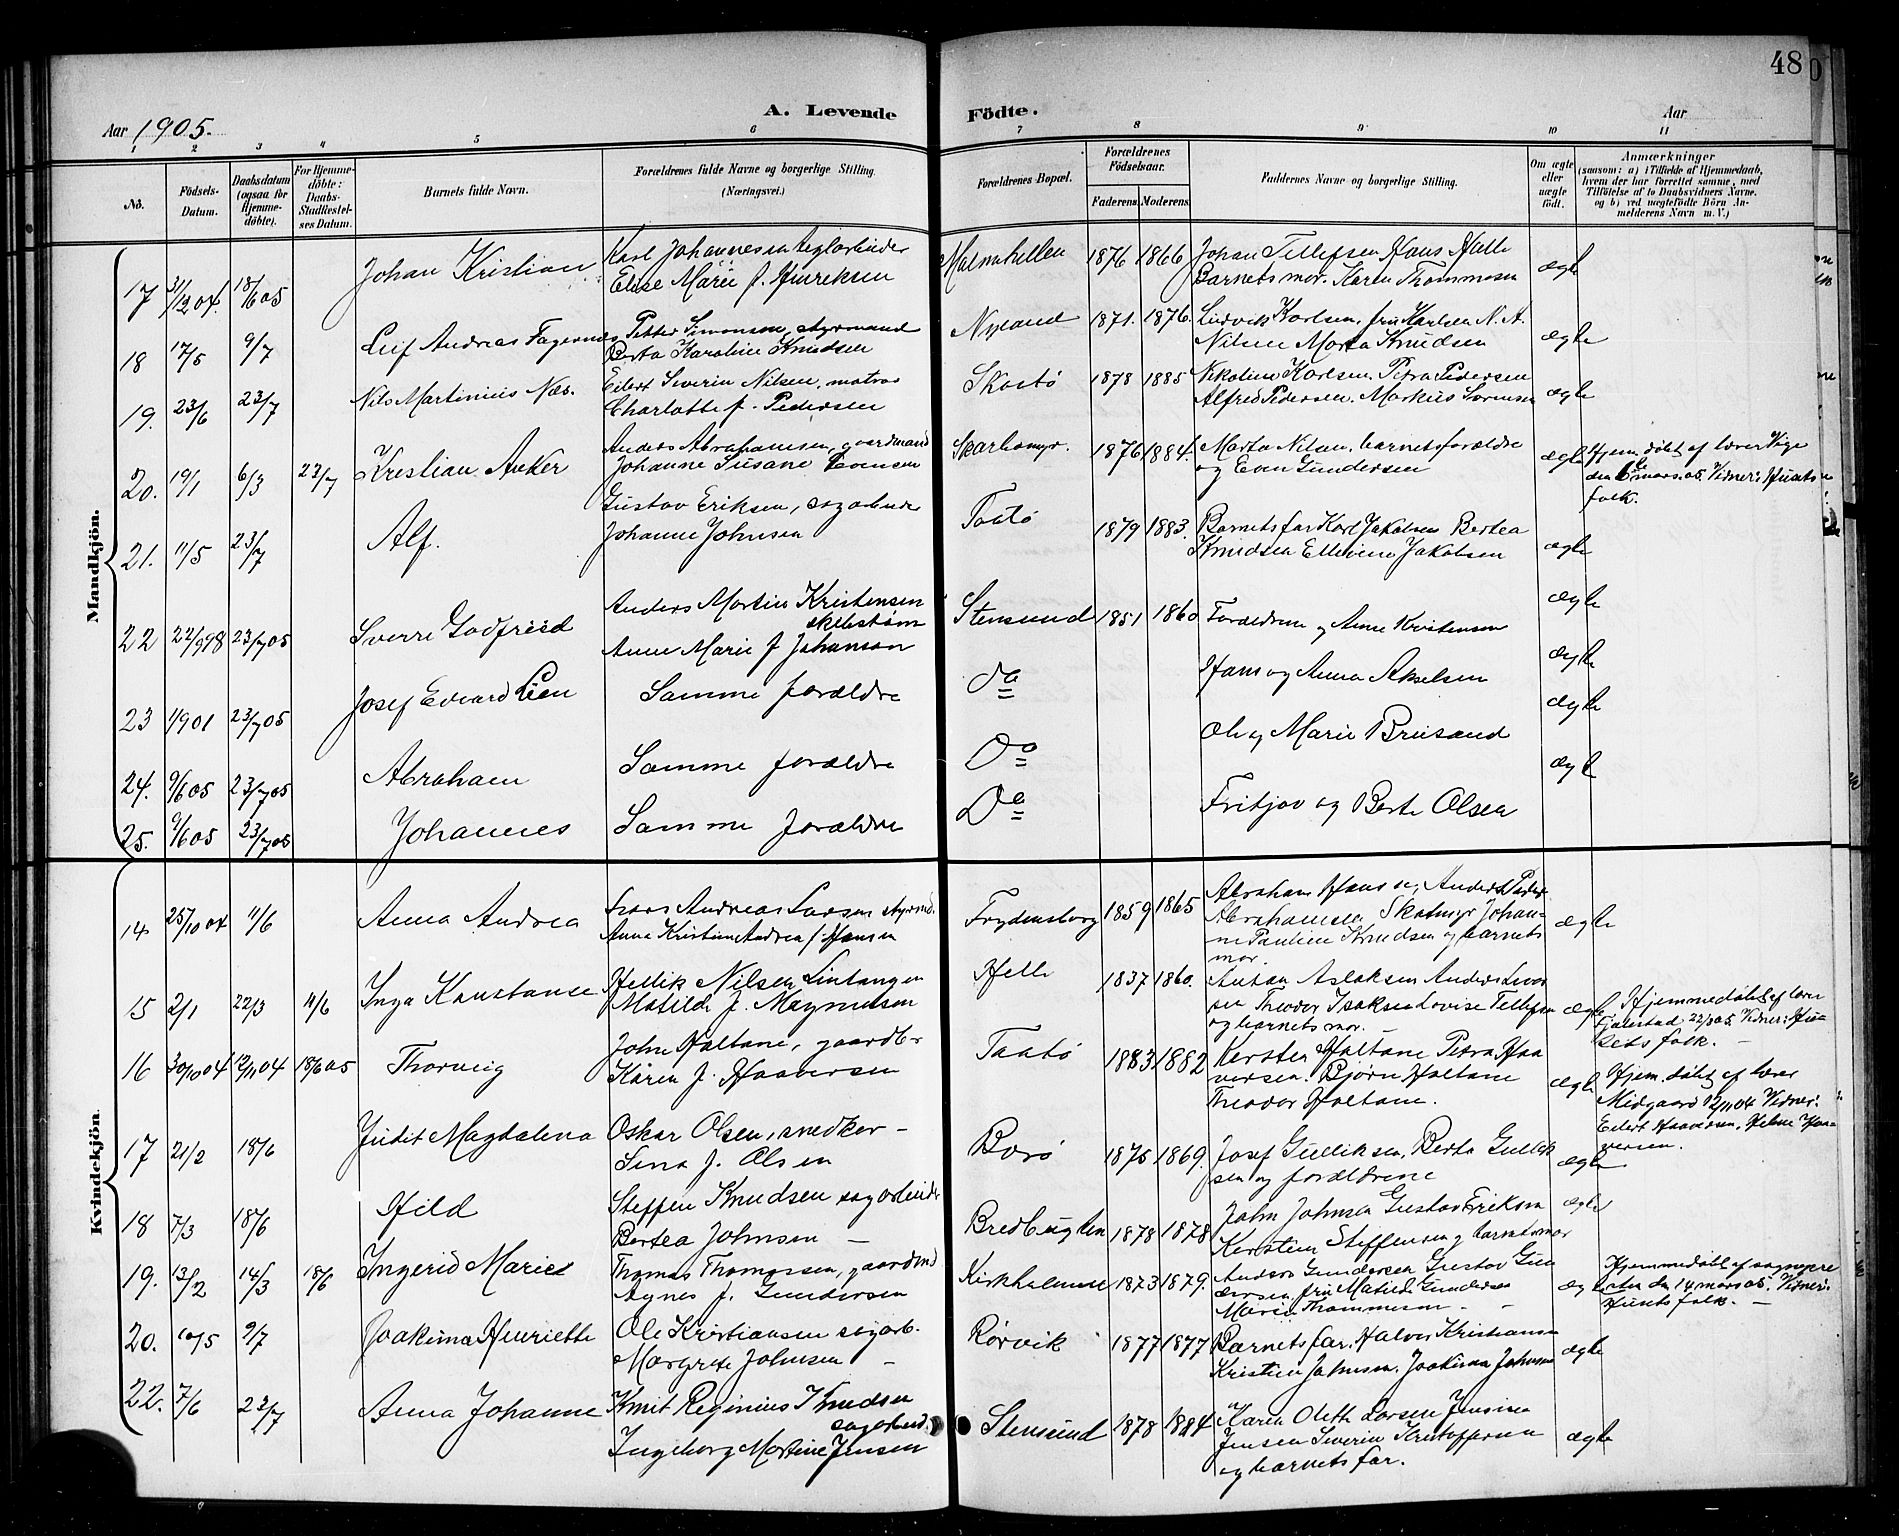 48
Aar 1905.
A. Levende Födte.
Aar
1 2 3 4 5 6 7 8 9 10 11
No. Födsels-Datum. Daabsdatum (ogsaa for Hjemmedöbte). For Hjemmedöbte: Daabs-Stadfæstelses Datum. Barnets fulde Navn. Forældrenes fulde Navne og borgerlige Stilling. (Næringsvei.) Forældrenes Bopæl. Forældrenes Födselsaar. Faderens. Moderens. Faddernes Navne og borgerlige Stilling. Om ægte eller uægte födt. Anmærkninger (saasom: a) i Tilfælde af Hjemmedaab, hvem der har forrettet samme, med Tilföielse af to Daabsvidners Navne, og b) ved uægtefödte Börn Anmelderens Navn m. V.)
Mandkjön.
17 31/12 04. 18/6 05 Johan Kristian Karl Johannessen teglarbeider Malmhellen 1876 1866 Johan Tellefsen Hans Halle ægte
Elise Marie f. Hinriksen Barnets mor. Karen Thommesen
18 17/5 9/7 Leif Andreas Fagernes Petter Simonsen, styrmand Nyland 1871. 1876. Ludvik Karlsen, fru Karlsen N. A. ægte
Berta Karoline Knudsen Nilsen Marta Knudsen
19. 23/6 23/7 Nils Martinius Næs. Eilert Severin Nilsen, matros Skatö 1878 1885 Nikoline Karlsen. Petra Pedersen ægte
Charlotte f. Pedersen Alfred Pedersen. Markus Sørensen
20. 19/1 6/3 23/7 Kristian Anker Anders Abrahamsen, gaardmand Skarbomyr. 1876 1884. Marta Nilsen, barnets forældre ægte Hjem. döbt af lærer Vige
Johanne Susane Evensen og Even Gundersen den 6te mars 05. Vidner: Husets
folk.
21. 11/5 23/7 Alf. Gustav Eriksen, sagarbeider Taatö 1879 1883. Barnets far Karl Jakobsen Bertea ægte
Johanne Johnsen Knudsen Ellevine Jakobsen
22 22/9 98 23/7 05 Sverre Godfried Anders Martin Kristensen Stensund 1851 1860 Forældrene og Anne Kristensen ægte
Anne Marie f Johanson
23 1/9 01 23/7 05 Josef Edvard Lien Samme forældre do Hans og Anna Akselsen ægte
24. 9/6 05 23/7 05 Abraham Samme forældre Do Ole og Marie Brusand ægte
25. 9/6 05 23/7 05 Johannes Samme forældre Do Fritjov og Berte Olsen ægte
Kvindekjön.
14 25/10 04 11/6 Anna Andrea Lars Andreas Larsen styrmd. Frydensborg 1859 1865 Abraham Hansen, Anders Peder ægte
Anne Kristine Andrea f. Hansen Abrahamsen Skatmyr Johan-
ne Pauline Knudsen og barnets
mor.
15 2/1 22/3 11/6 Inga Konstanse Hellik Nilsen Lintangen Helle 1837 1860. Anton Aslaksen Anders Lar- ægte Hjemmedöbt af lærer
Matilde f. Magnudsen sen Theodor Isaksen Lovise Tellefsen Fjalestad 22/3 05. Vidner: Hu-
og barnets mor. sets folk.
16 30/10 04 12/11 04 18/6 05 Thorvig John Haltane, gaardbr Taatö 1883 1882 Kersten Haltane Petra Haa ægte Hjem. döbt af lærer
Karen f. Haaversen versen. Bjørn Haltane Midgaard 12/11 04 Vidner:
Theodor Haltane. Eilert Haaversen, Helene Haa-
versen.
17 21/2 18/6 Judit Magdalena Oskar Olsen, snedker Borö 1875 1869. Josef Gulliksen, Berta Gullik ægte
Lina f. Olsen sen og forældrene
18 7/3 18/6 Hild Steffen Knudsen sagarbeider Bredbugten 1878 1878 John Johnsen Gustav Eriksen ægte
Bertea Johnsen Kerstine Steffensen og barnets mor
19. 13/2 14/3 18/6 Ingerid Marie Thomas Thomassen, gaardmd Kirkholmen 1873 1879. Anders Gundersen Gustav Gun ægte Hjemmedöbt af sognepre
Agnes f. Gundersen dersen, fru Matilde Gundersen sten den 14 mars 05. Vidner:
Marie Thommesen Husets folk.
20. 10/5 9/7 Joakima Henriette Ole Kristiansen sagarb. Rörvik 1877 1877 Barnets far, Halvor Kristiansen ægte
Margrete Johnsen Kristine Johnsen. Joakima Johnsen
22. 7/6 23/7 Anna Johanne Knut Reginius Knudsen Stensund 1878 1884 Karen Oleth Larsen Jensine ægte
sagarbeid. Jensen Severin Kristoffersen
Ingeborg Martine Jensen og barnets far.